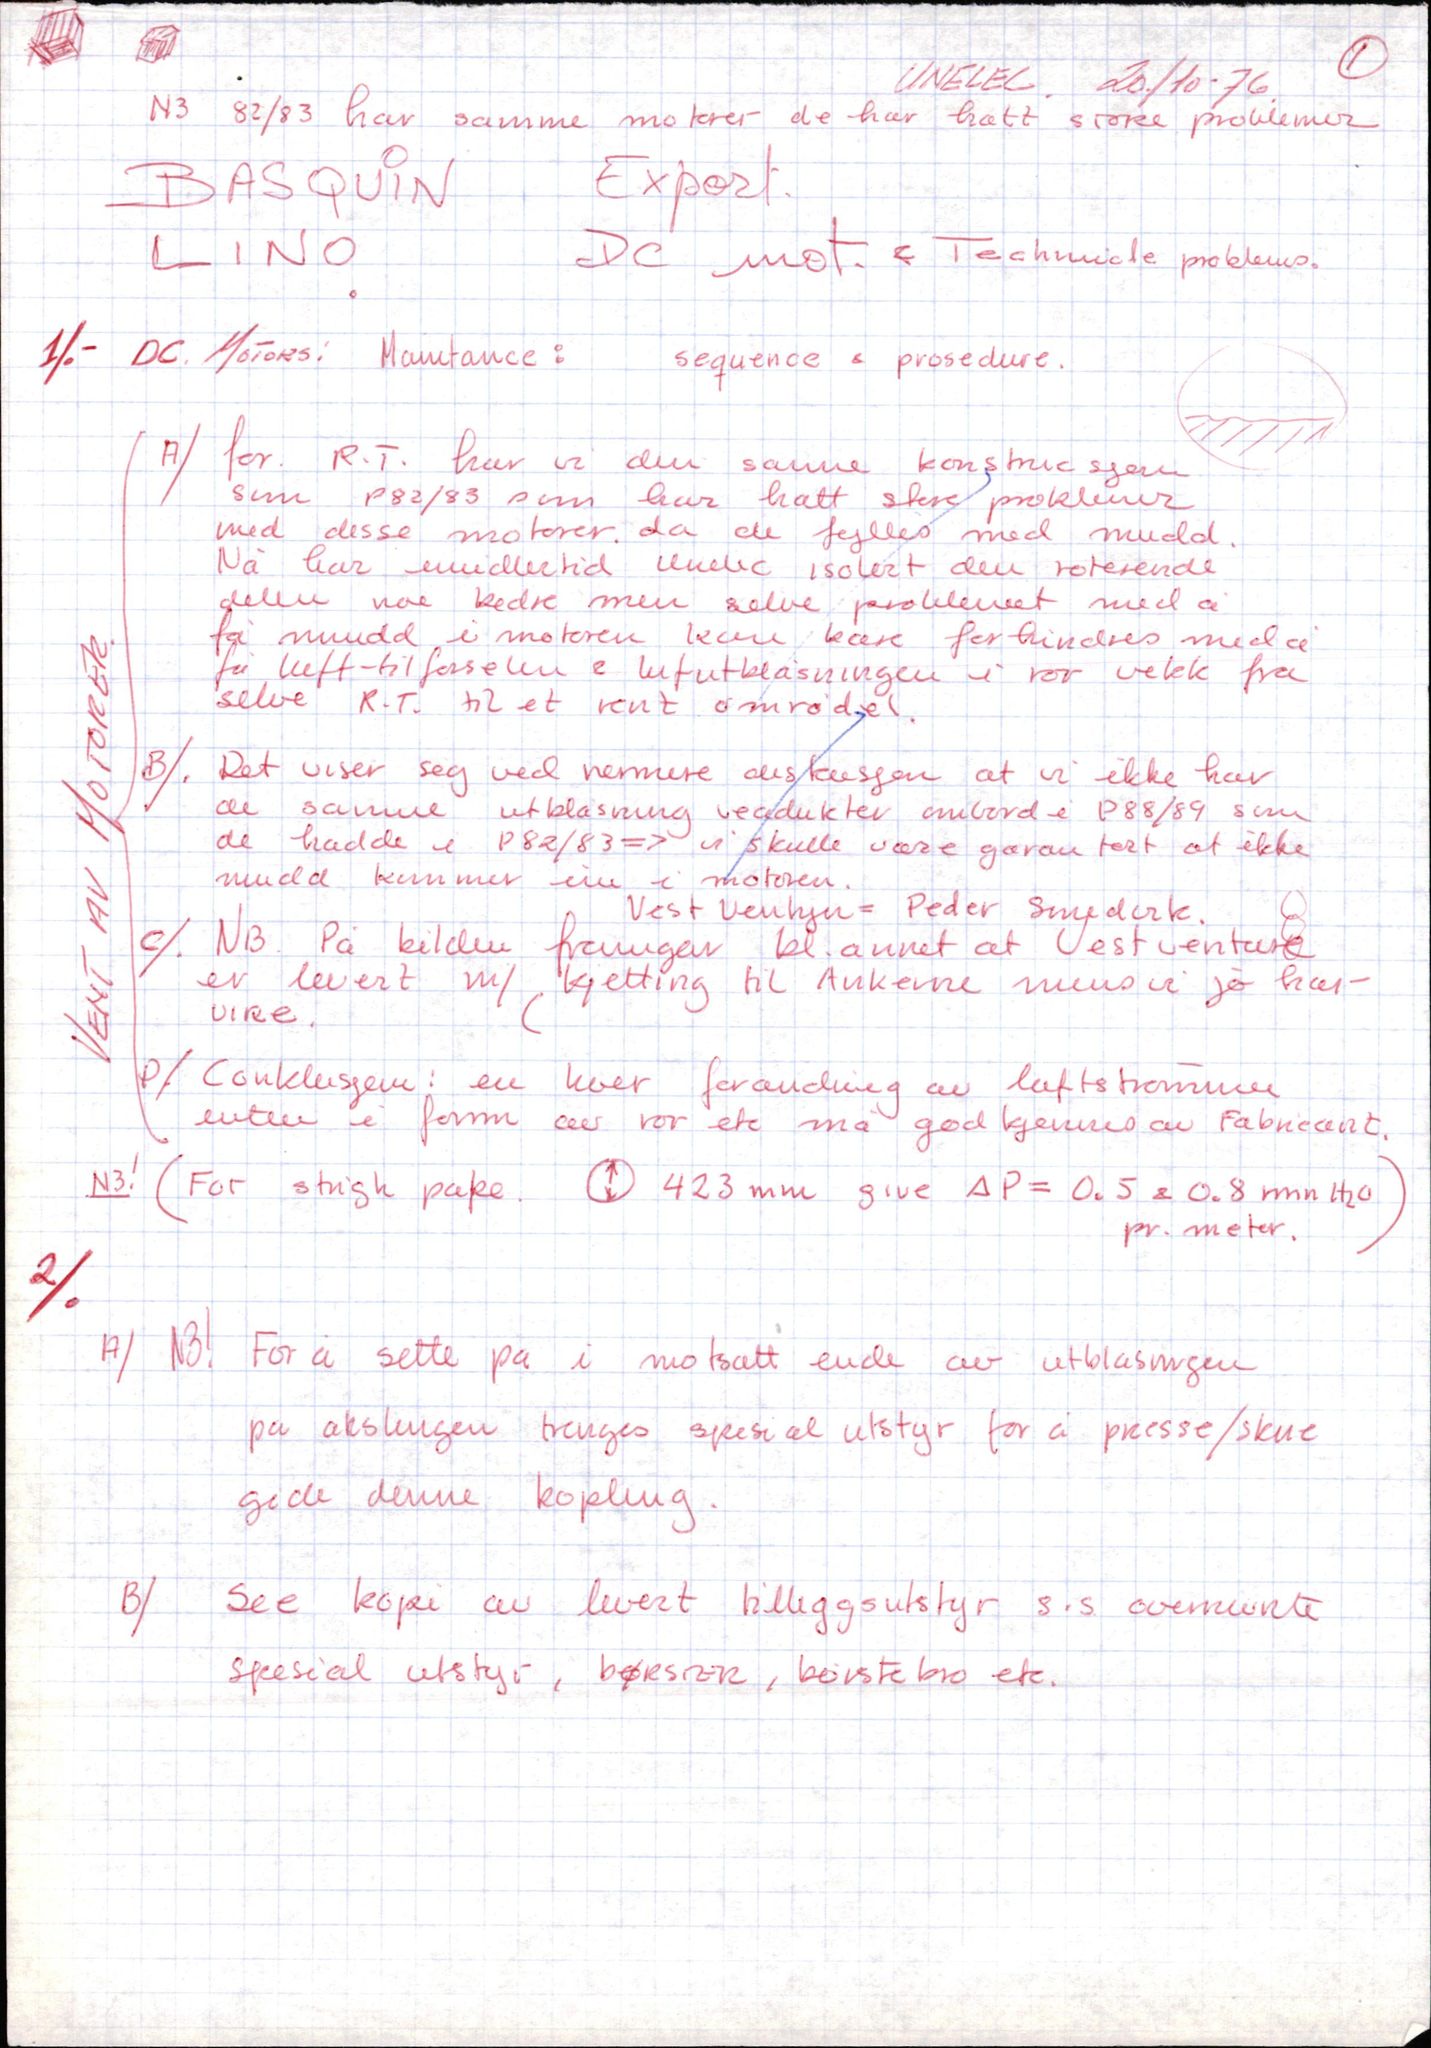 1
UNELEC. 20/10-76.
NB 82/83 har samme motorer de har hatt store problemer
BASQUIN Export.
LINO. DC mot. & Technicle problems.
1/.- DC. MOTORS: Maintance: sequence & prosedure.
VENT AV MOTORER.
A/ for. R.T. har vi den samme konstruksjon
som P82/83 som har hatt store problemer
med disse motorer. da de fylles med mudd.
Nå har imidlertid Unelec isolert den roterende
delen noe bedre men selve problemet med å
få mudd i motoren kan bare forhindres med å
få luft-tilførselen & luftutblåsningen i rør vekk fra
selve R.T. til et rent område.
B/. Det viser seg ved nermere diskusjon at vi ikke har
de samme utblåsning ombord i P88/89 som
de hadde i P82/83 => vi skulle være garantert at ikke
mudd kommer inn i motoren.
Vest = Peder
C/. NB. På bilder framgår bl. annet at Vestventure
er levert m/ kjetting til Ankerne mens vi jo har
vire.
D/ Conklusjon: en hver forandring av luftstrømmen
enten i form av rør etc må godkjennes av Fabricant.
NB! (For pape. 423 mm give ΔP = 0.5 à 0.8 mm H2O
pr. meter.)
2/.
A/ NB! For å sette på i motsatt ende av utblåsningen
på akslingen trenges spesial utstyr for å presse/skru
denne kopling.
B/ See kopi av levert tilleggsutstyr s.s ovennevnte
spesial utstyr, børster, børstebro etc.